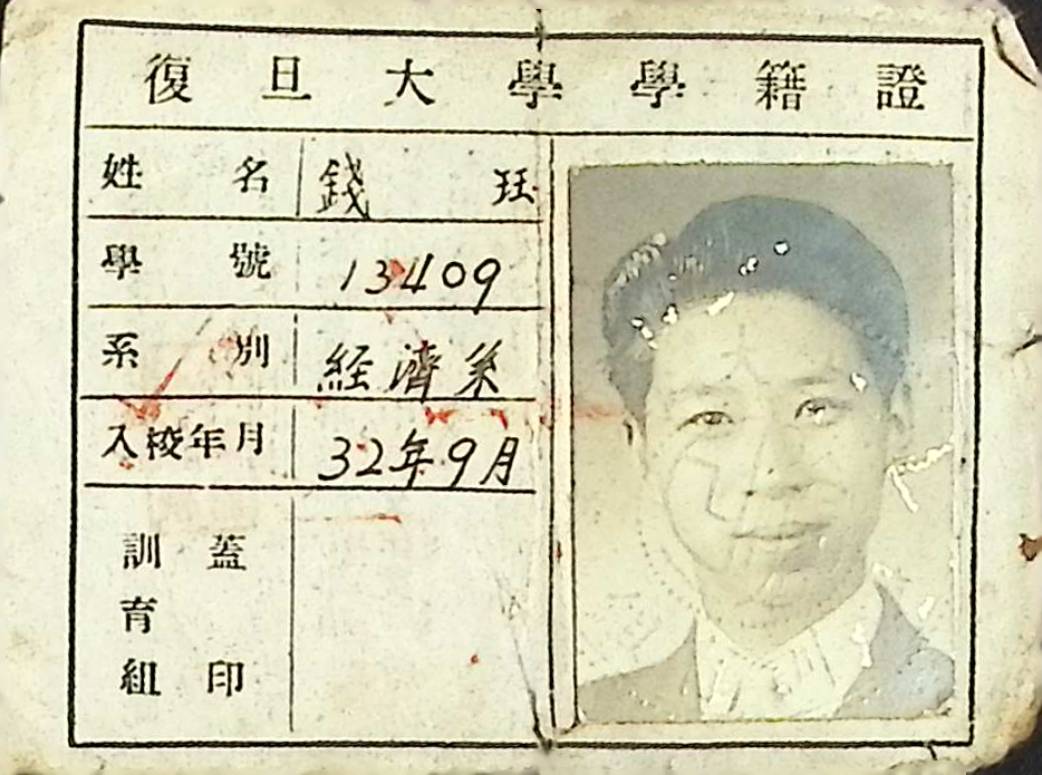 復旦大學學籍證
姓名 錢 珏
學號 13409
系別 経濟系
入校年月 32年9月
訓育組蓋印